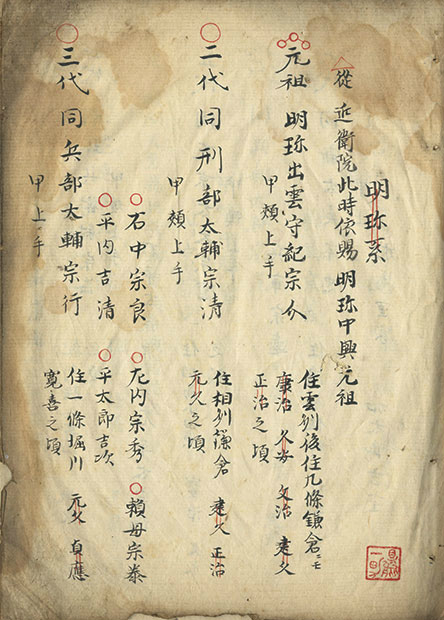 明珎系
從近衛院此時依賜明珎中興元祖
元祖 明珎出雲守紀宗介
甲頬上手
住雲州後住九條鎌倉ニモ
康治 久安 文治 建久
正治之頃
二代同刑部太輔宗清
甲頬上手
住相州鎌倉 建久 正治
元久之頃
石中宗良 左内宗秀 頼母宗泰
平内吉清 平太郎吉次
三代同兵部太輔宗行
甲上手
住一條堀川 元久 貞應
寛喜之頃